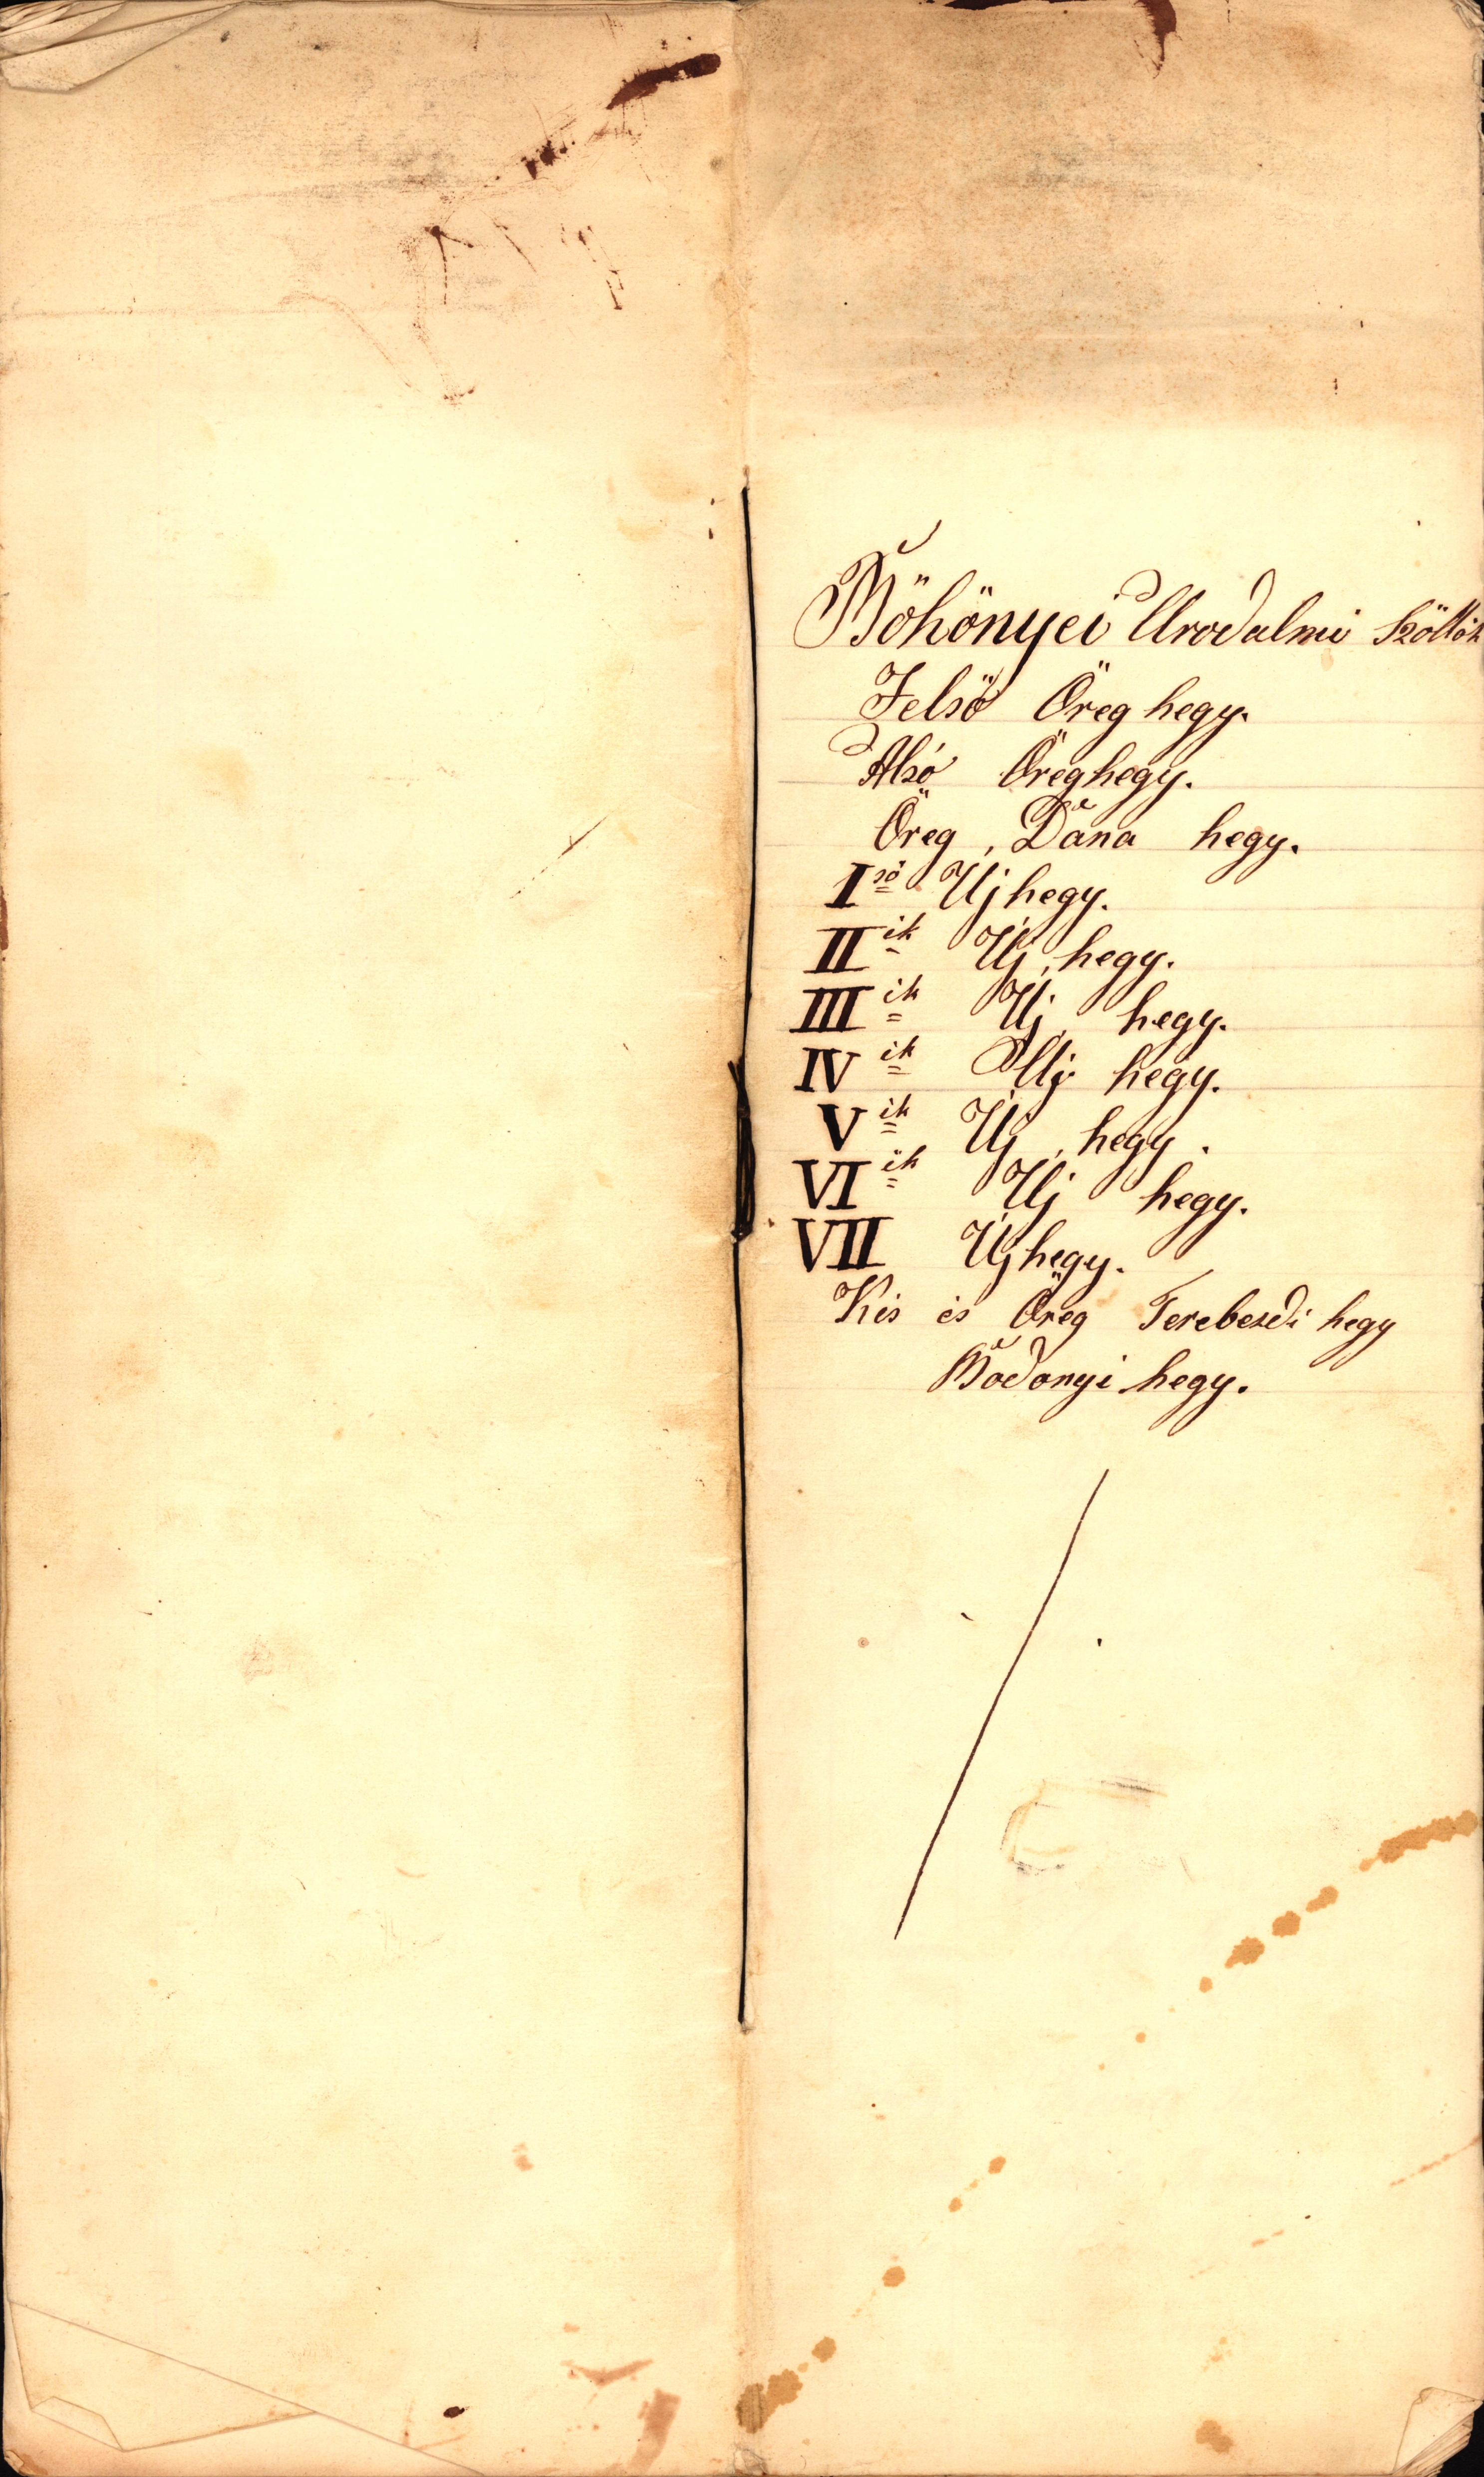 Böhönyei Urodalmi Szöllök
Felsö Öreg hegy.
Alsó Öreghegy.
Öreg, Dána hegy.
I ső Ujhegy.
II ik Uj, hegy.
III ik Uj hegy.
IV ik Uj hegy.
V ik Uj, hegy.
VI ik Uj hegy.
VII Ujhegy.
Kis és Öreg Terebezdi hegy
Bodonyi hegy.